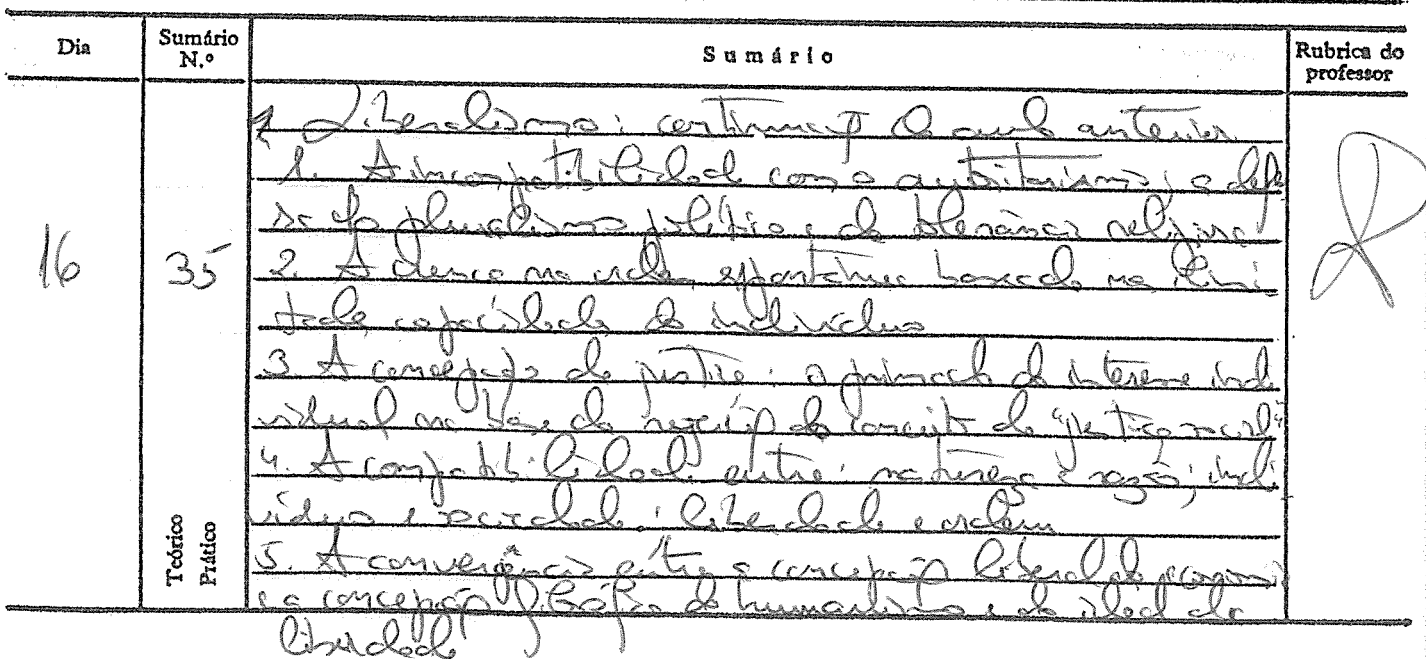 Dia
Sumário N.º
Sumário
Rubrica do professor
Liberalismo: continuação da aula anterior
1. A incompatibilidade com o autoritarismo; a defe
sa do pluralismo político e da tolerância religiosa
16
35
2. A crença na ordem espontânea baseada na limi
tada capacidade do indivíduo
3. A concepção de justiça: o primado do interesse indi
vidual na base da rejeição do conceito de "justiça social"
4. A compatibilidade entre: natureza e razão; indi
víduo e sociedade; liberdade e ordem
Teórico
Prático
5. A convergência entre a concepção liberal da economia
e a concepção filosófica do humanismo e do ideal da
liberdade